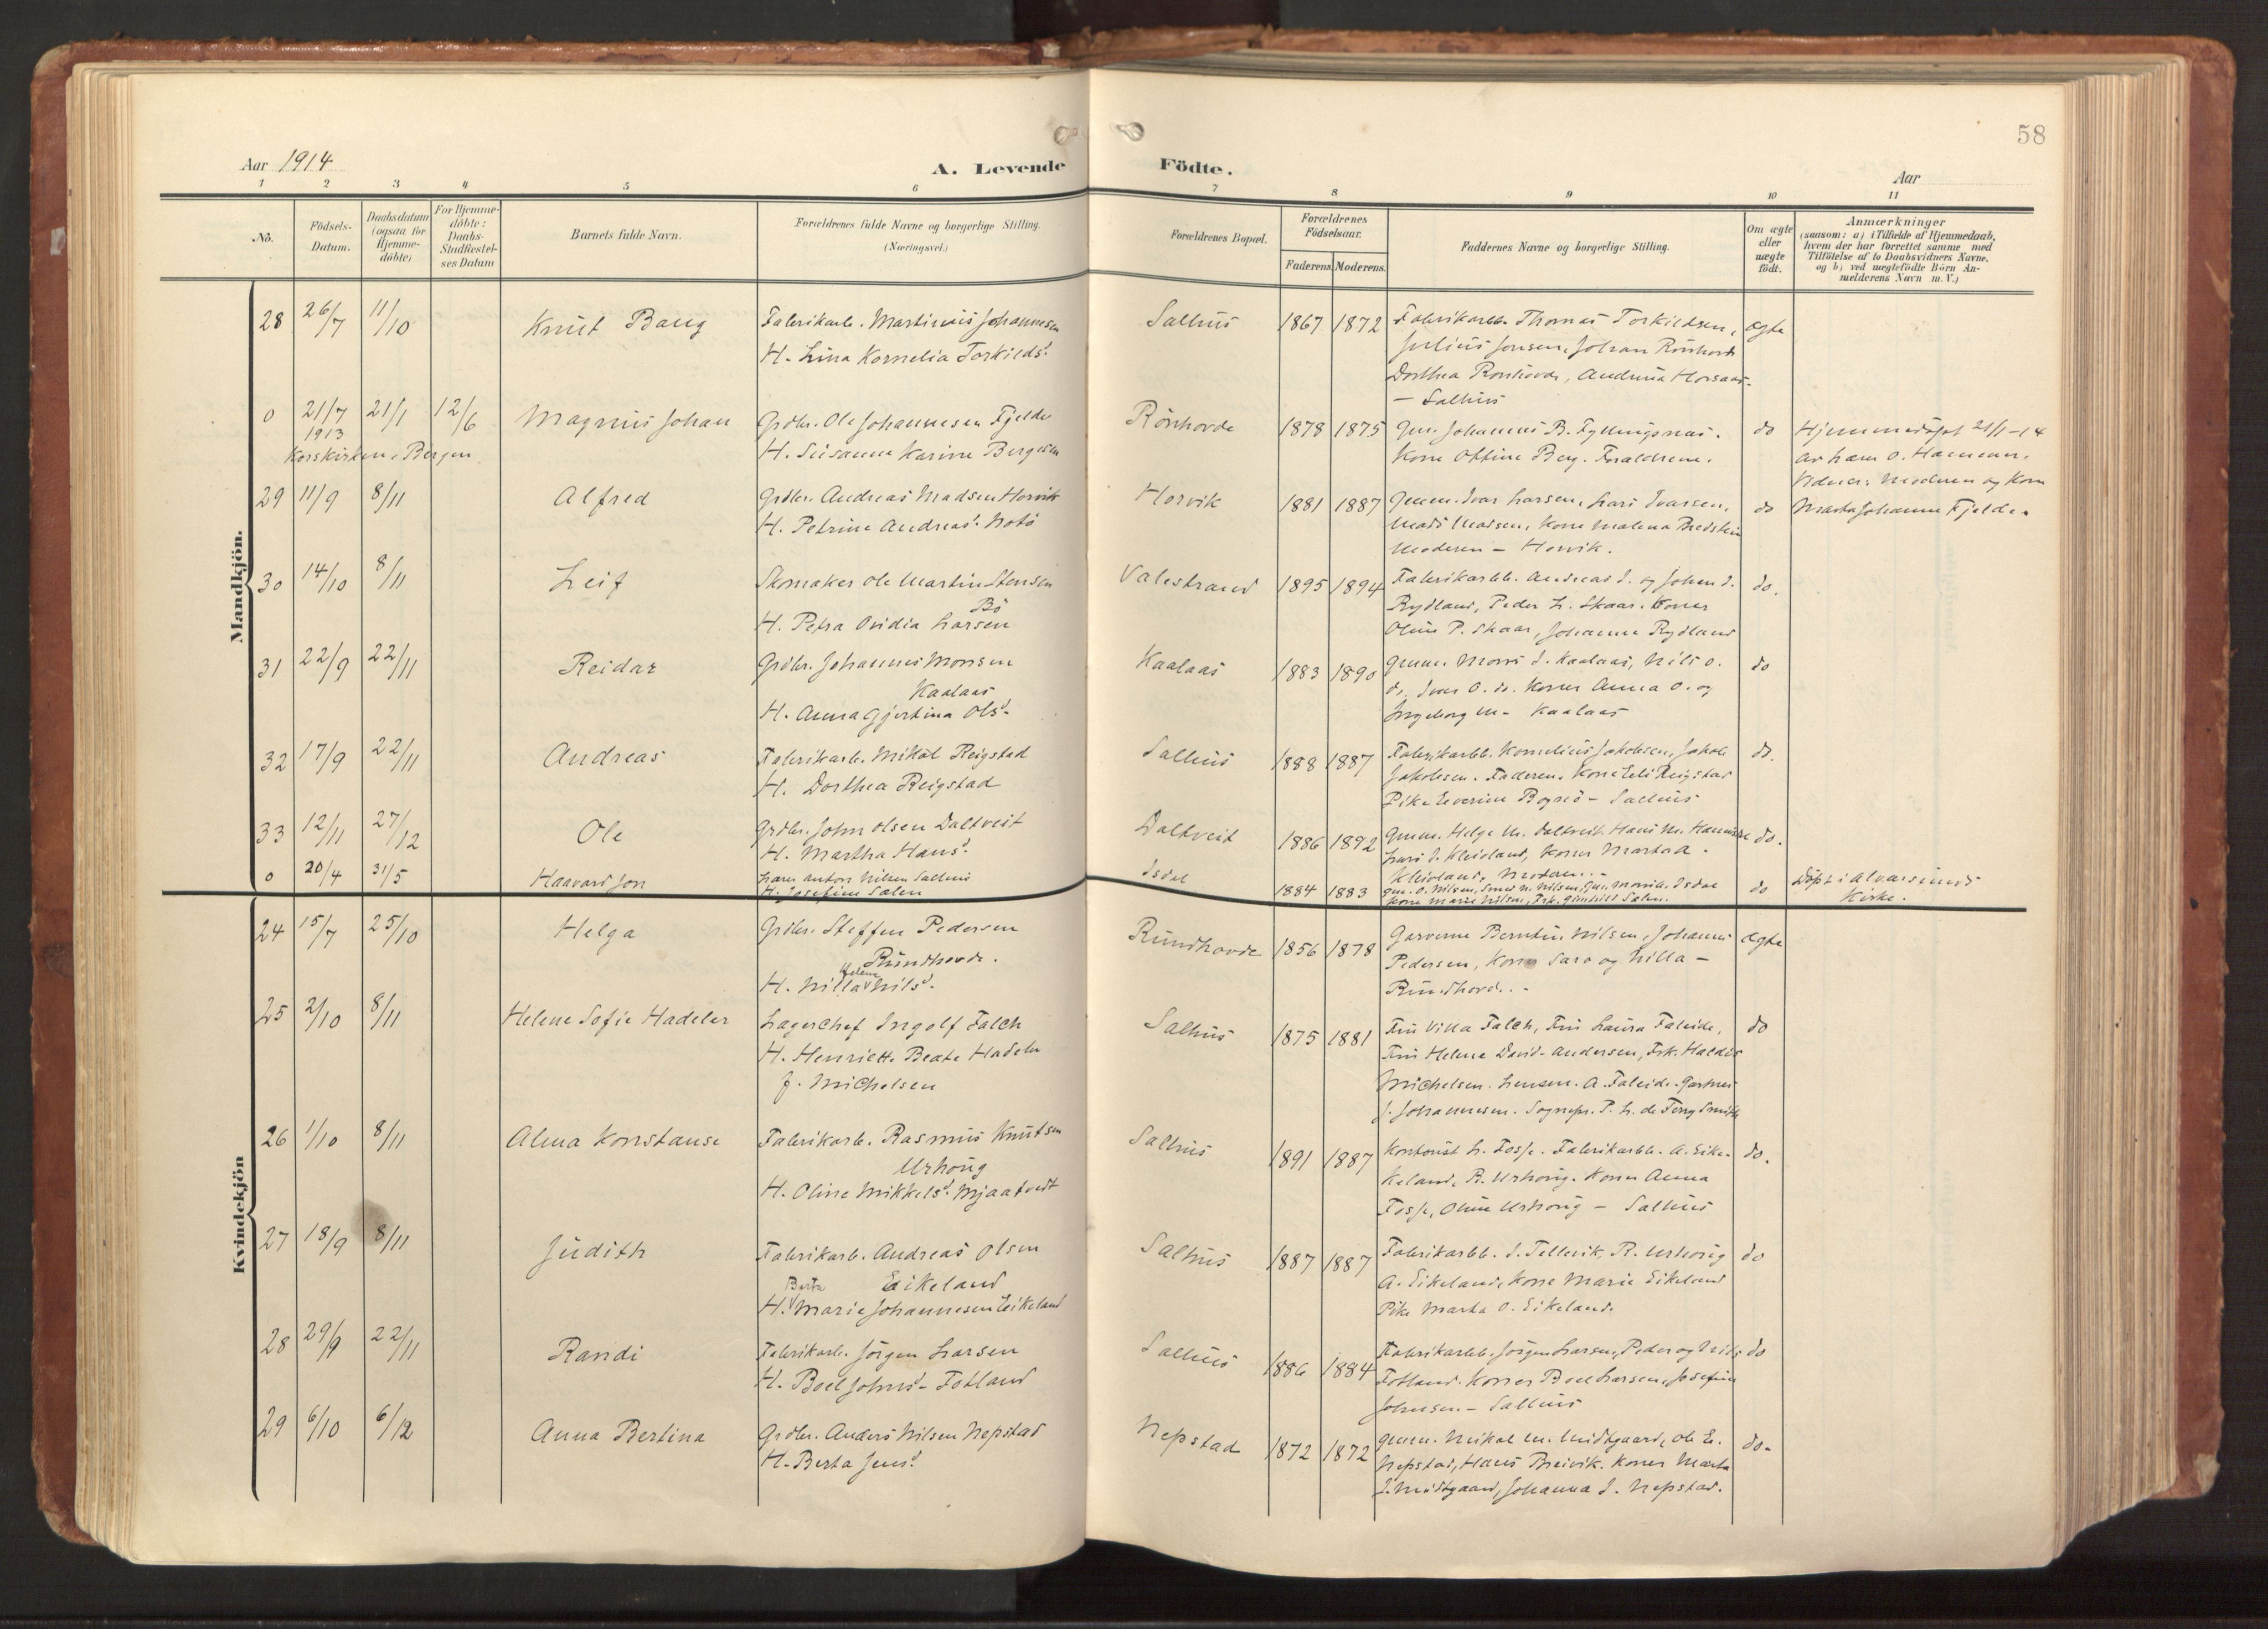 58
Aar 1914
A. Levende Födte.
Aar
1 2 3 4 5 6 7 8 9 10 11
No.
Födsels-Datum.
Daabsdatum (ogsaa for Hjemme-döbte)
For Hjemme-döbte: Daabs-Stadfæstel-ses Datum
Barnets fulde Navn.
Forældrenes fulde Navne og borgerlige Stilling. (Næringsvei.)
Forældrenes Bopæl.
Forældrenes Födselsaar.
Faderens. Moderens.
Faddernes Navne og borgerlige Stilling.
Om ægte eller uægte födt.
Anmærkninger
(saasom: a) i Tilfælde af Hjemmedaab, hvem der har forrettet samme med Tilföielse af to Daabsvidners Navne, og b) ved uægtefödte Börn An-melderens Navn m. V.)
Mandkjön.
28 26/7 11/10 Knut Baug Fabrikarb. Martinus Johannesen Salhus 1867 1872 Fabrikarbb. Thomas Torkildsen, ægte
H. Lina Kornelia Torkildsd. Julius Jonsen, Johan Rönhovd
Dorthea Rönhovde, Andrina Horsaas-
— Salhus
0 21/7 21/1 12/6 Magnus Johan Grdbr. Ole Johannesen Fjelde Rönhovde 1878 1875 Gm. Johannes B. Fyllingsnæs. do Hjemmedöpt 21/1-14
1913 H. Susanna Karine Bergesen Kone Ottine Berg. Forældrene. av
Korskirken, Bergen Moderen og Kone
29 11/9 8/11 Alfred Grdbr. Andreas Madsen Horvik Horvik 1881 1887 Gmm. Ivar Larsen, Lars Ivarsen, do Marta Johanna Fjelde.
H. Petrine Andreasd. Notö Mads Madsen, Kone Malena Bredstein
Moderen — Horvik.
30 14/10 8/11 Leif Skomaker Ole Martin Stensen Valestrand 1895 1894 Fabrikarbb. Andreas J. og Johan J. do.
Bö Rydland, Peder L. Skaar. Koner
H. Petra Ovidia Larsen Oline P. Skaar, Johanna Rydland
31 22/9 22/11 Reidar Grdbr. Johannes Monsen Kaalaas 1883 1890 Gmm. Mons J. Kaalaas, Nils O. do
Kaalaas do, Ivar O. do. Koner Anna O. og
H. Anna Gjertina Olsd. Ingeborg M. Kaalaas
32 17/9 22/11 Andreas Fabrikarb. Mikal Reigstad Salhus 1888 1887 Fabrikarbb. Kornelius Jakobsen, Jakob do.
H. Dorthea Reigstad Jakobsen. Faderen. Kone Eli Reigstad
Pike Severine Bogsö - Salhus
33 12/11 27/12 Ole Grdbr. John Olsen Daltveit Daltveit 1886 1892 Gmm. Helge M. Daltveit. Hans M. do.
H. Martha Hansd. Lars J. Kleivland, Koner Marta A.
Kleivland, Moderen.
0 20/4 31/5 Haavard Jon Lars Anton Nilsen Salhus Isdal 1884 1883 do Döpt i Alversunds
H. Josefine Sælen Kone Marie Nilsen, Frk. Gunhild Sælen. Kirke.
Kvindekjön
24 15/7 25/10 Helga Grdbr. Steffen Pedersen Rundhovde 1856 1878 Garverne Berntin Nilsen, Johannes ægte
Rundhovde. Pedersen, Koner Sara og Nilla —
H. Nilla Helene Nilsd. Rundhovde.
25 2/10 8/11 Helene Sofie Hadeler Lagerchef Ingolf Falch Salhus 1875 1881 Fru Villa Falch, Fru Laura Faleide, do
H. Henriette Beate Hadeler Fru Helene David-Andersen, Frk. Haldis
f. Michelsen Michelsen. Lensm. A. Faleide. Gartner
J. Johannesen. Sognepr. P. L. de Ferry Smith
26 1/10 8/11 Alma Konstanse Fabrikarb. Rasmus Knutsen Salhus 1891 1887 Kontorist L. Fosse. Fabrikarbb. A. Eike- do.
Urhaug keland, R. Urhaug. Koner Anna
H. Oline Mikkelsd. Mjaatvedt Fosse, Oline Urhaug — Salhus
27 18/9 8/11 Judith Fabrikarb. Andreas Olsen Salhus 1887 1887 Fabrikarbb. J. Tellevik, R. Urhaug do
Eikeland A. Eikeland, Kone Marie Eikeland
H. Berta Marie Johannesen Eikeland Pike Marta O. Eikeland.
28 29/9 22/11 Randi Fabrikarb. Jörgen Larsen Salhus 1886 1884 Fabrikarbb. Jörgen Larsen, Peder og Nils do
H. Boel Johnsd. Fotland Fotland. Koner Boel Larsen, Josefine
Johnsen. - Salhus
29 6/10 6/12 Anna Bertina Grdbr. Anders Nilsen Nepstad Nepstad 1872 1872 Gmm. Mikal M. Midtgaard, Ole E. do.
H. Berta Jensd. Nepstad, Hans Breivik. Koner Marta
J. Midtgaard, Johanna J. Nepstad.